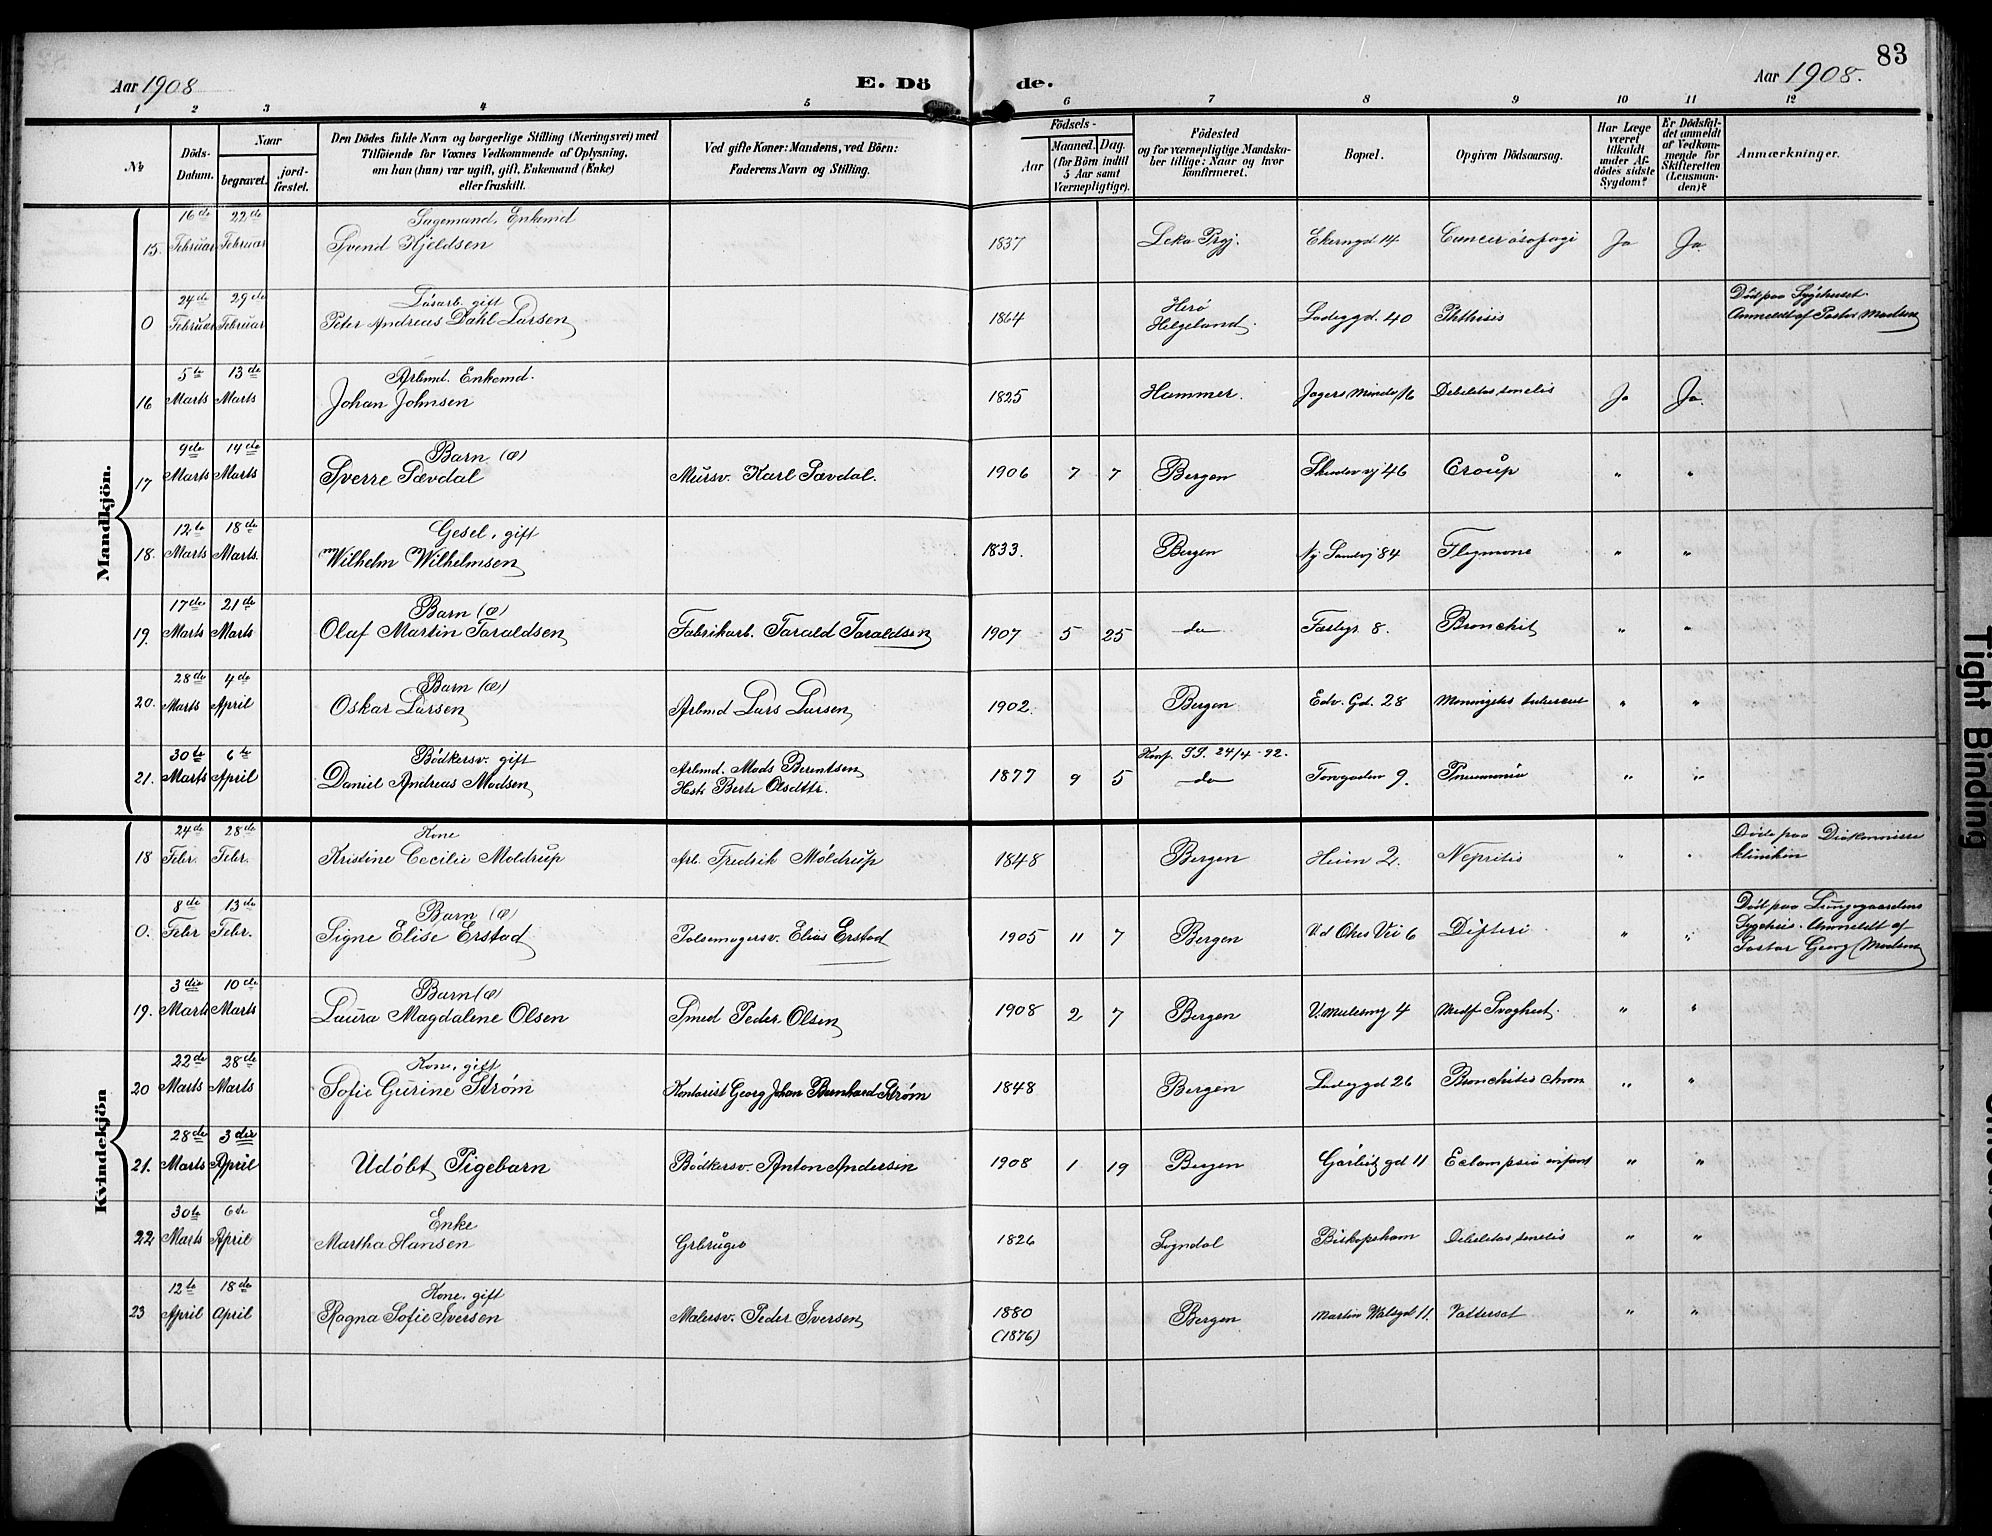 83
Aar 1908
E. Dö
de.
Aar 1908.
1 2 3 4 5 6 7 8 9 10 11 12
No
Döds-Datum.
Naar
begravet.
jord-fæstet.
Den Dödes fulde Navn og borgerlige Stilling (Næringsvei) med
Tilföiende for Voxnes Vedkommende af Oplysning,
om han (hun) var ugift, gift, Enkemand (Enke)
eller fraskilt.
Ved gifte Koner: Mandens, ved Börn:
Faderens Navn og Stilling.
Födsels-
Aar
Maaned. Dag.
(for Börn indtil
5 Aar samt
Værnepligtige).
Födested
og for værnepligtige Mandska-
ber tillige: Naar og hvor
konfirmeret.
Bopæl.
Opgiven Dödsaarsag.
Har Læge
været
tilkaldt
under Af-
dödes sidste
Sygdom?
Er Dödsfal-
det anmeldt
af Vedkom-
mende for
Skifteretten
(Lensman-
den)?
Anmærkninger.
Mandkjön.
16de 22de Sagemand, Enkemd
15. Februar Februar Svend Kjeldsen 1837 Leka Prgj. Ekerngd 14 Cancer ösofagi Ja Ja
24de 29de Lösarb. gift
0 Februar Februar Peter Andreas Dahl Larsen 1864 Herö Helgeland Ladeggd. 40 Phthisis
Död paa Sygehuset.
Anmeldt af Pastor Madsen
5te 13de Arbmd. Enkemd.
16 Marts Marts Johan Johnsen 1825 Hammer. Jagers Minde 16 Debelitas senelis Ja Ja
9de 14de Barn (æ)
17 Marts Marts Sverre Sævdal Mursv. Karl Sævdal. 1906 7 7 Bergen 46 Croup " "
12te 18de Gesel, gift
18. Marts Marts. Wilhelm Wilhelmsen 1833. Bergen Ny Sandvj 84 Flegmone " "
17de 21de Barn (æ)
19. Marts Marts Olaf Martin Taraldsen Fabrikarb. Tarald Taraldsen 1907 5 25 do 8. Bronchit " "
28de 4de Barn (æ)
20. Marts April Oskar Larsen Arbmd Lars Larsen 1902. Bergen Edv. Gd. 28 Meningitis " "
30te 6te Bödkersv. gift Konf. 24/4 - 92.
21. Marts April Daniel Andreas Madsen Arbmd. Mads Berentsen 1877 9 5 do Torvgaden 9. Pneumonia " "
Hstr Berte Olsdttr.
Kvindekjön
24de 28de Kone
18 Febr. Febr. Kristine Cecilie Moldrup Arb. Fredrik Möldrup 1848 Bergen Heien 2. Nepritis " "
Döde paa Diakonnisse
kliniken
8de 13de Barn (æ)
0. Febr Febr. Signe Elise Erstad Polsemagersv. Elias Erstad 1905 11 7 Bergen Vei 6 Difteri " "
Död paa Lungegaardens
Sygehus. Anmeldt af
Pastor Georg Madsen
3die 10de Barn (æ)
19. Marts Marts Laura Magdalene Olsen Smed Peder Olsen 1908 2 7 Bergen 4 Medf Svaghed. " "
22de 28de Kone, gift
20 Marts Marts Sofie Gurine Strøm Kontorist Georg Johan Bernhard Strøm 1848 Bergen Ladeggd 26 Bronchites chron " "
28de 3die
21. Marts April Udöbt Pigebarn Bödkersv. Anton Andersen 1908 1 19 Bergen gd 11 Eclampsia infant " "
30te 6te Enke
22 Marts April Martha Hansen Grbruger 1826 Sogndal Biskopsham Debelitas senelis " "
12te 18de Kone, gift
23 April April Ragna Sofie Iversen Malersv. Peder Iversen 1880 Bergen Martin Watsgd 11. Vattersot " "
(1876)
Tight Binding